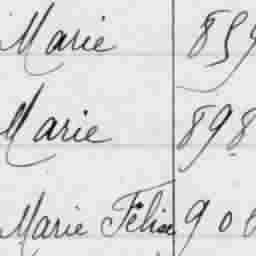 Marie 859
Marie 898
Marie Félise 900